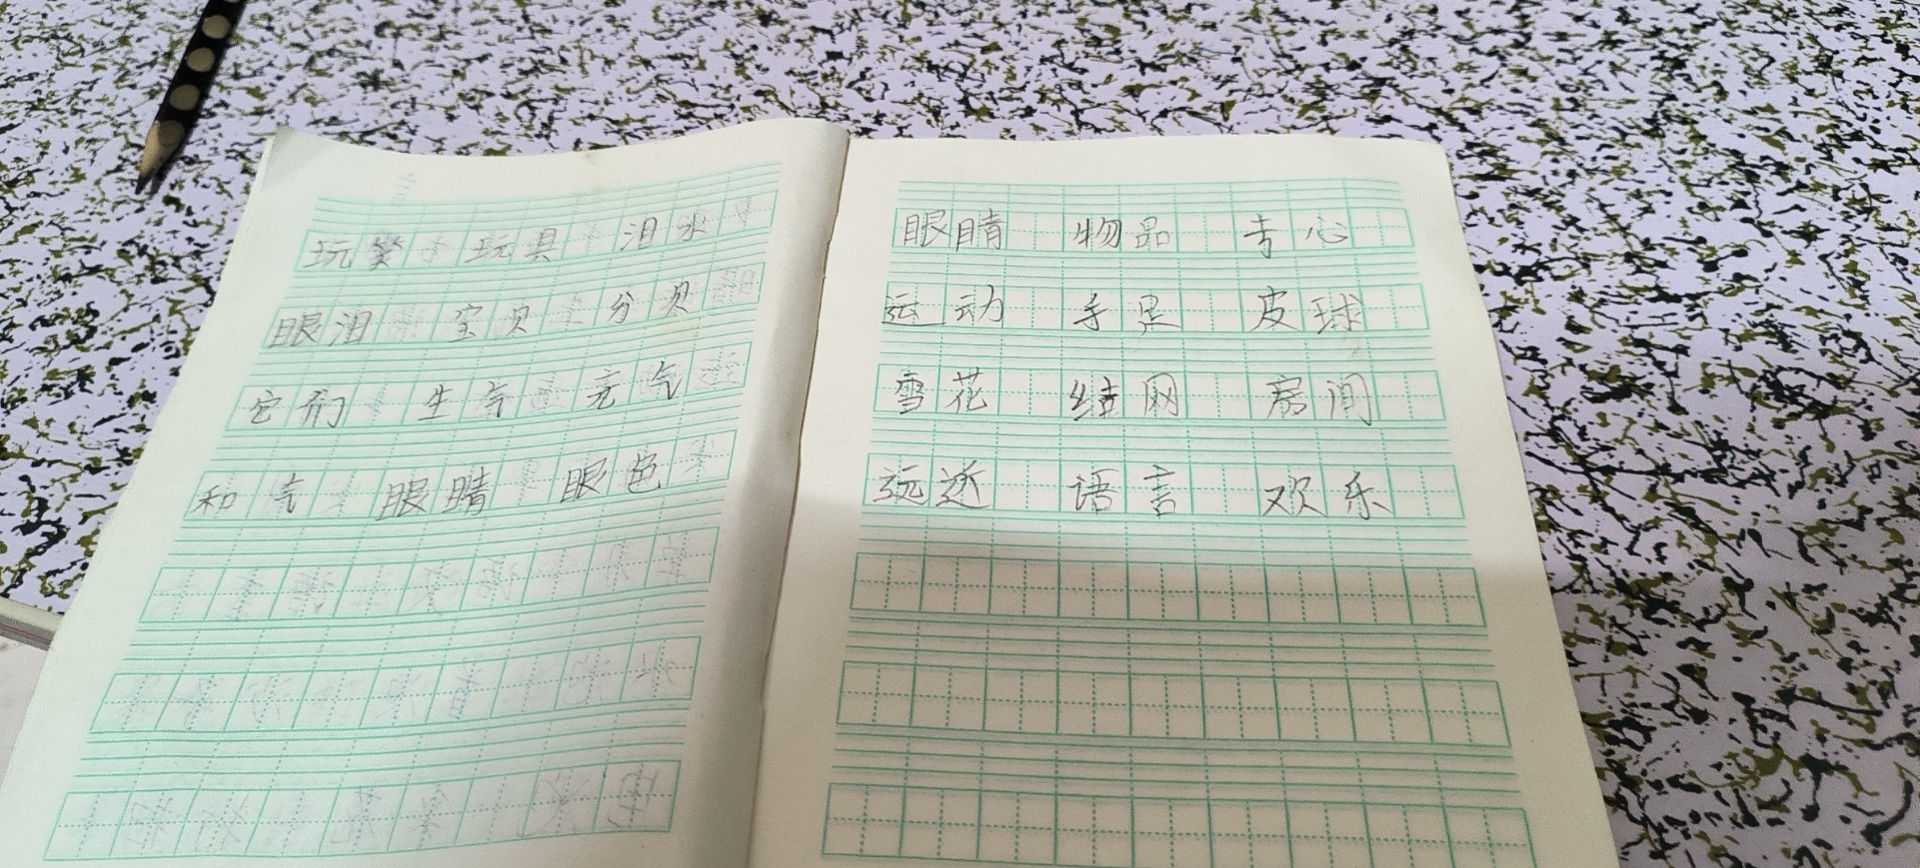 玩 玩具 泪水
眼泪 宝贝 分贝
它们 生气 元气
和气 眼睛 眼色
眼睛 物品 专心
运动 手足 皮球
雪花 结网 房间
远近 语言 欢乐